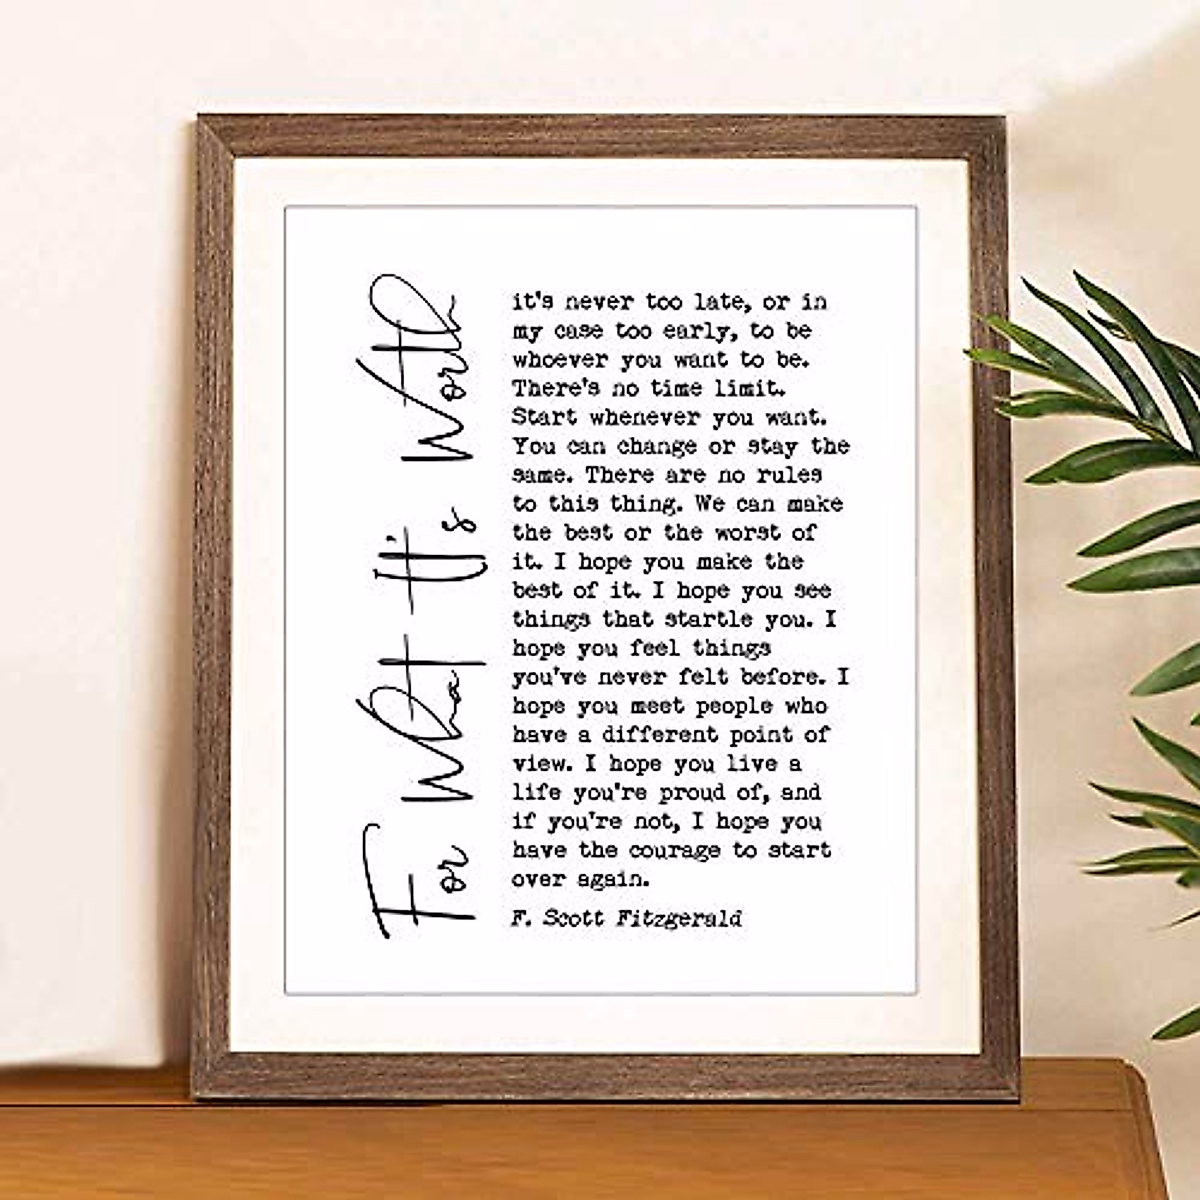 For What It's Worth
it's never too late, or in
my case too early, to be
whoever you want to be.
There's no time limit.
Start whenever you want.
You can change or stay the
same. There are no rules
to this thing. We can make
the best or the worst of
it. I hope you make the
best of it. I hope you see
things that startle you. I
hope you feel things
you've never felt before. I
hope you meet people who
have a different point of
view. I hope you live a
life you're proud of, and
if you're not, I hope you
have the courage to start
over again.
F. Scott Fitzgerald